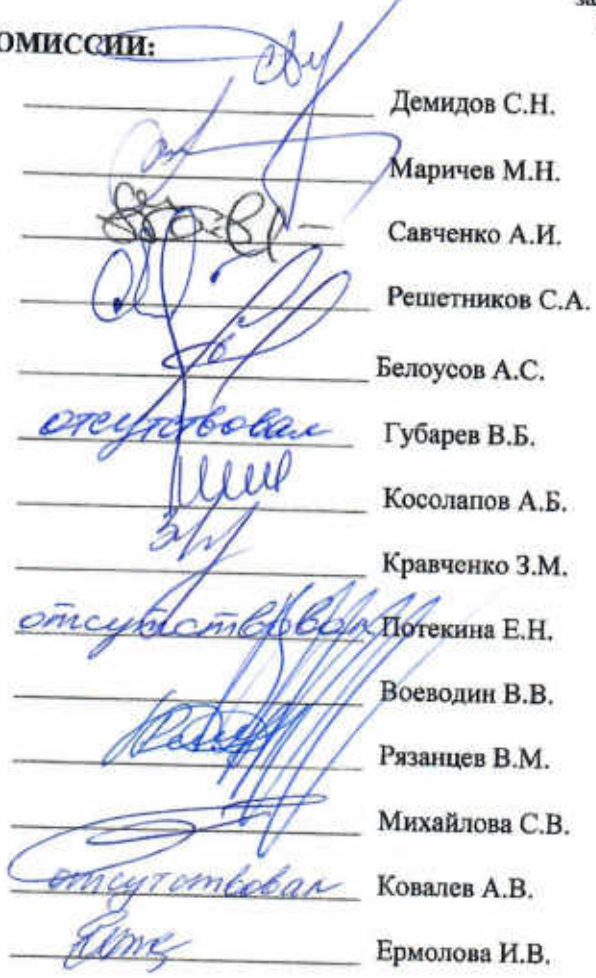 за
ОМИССИИ:
Демидов С.Н.
Маричев М.Н.
Савченко А.И.
Решетников С.А.
Белоусов А.С.
отсутствовал Губарев В.Б.
Косолапов А.Б.
Кравченко З.М.
отсутствовал Потекина Е.Н.
Воеводин В.В.
Рязанцев В.М.
Михайлова С.В.
отсутствовал Ковалев А.В.
Ермолова И.В.